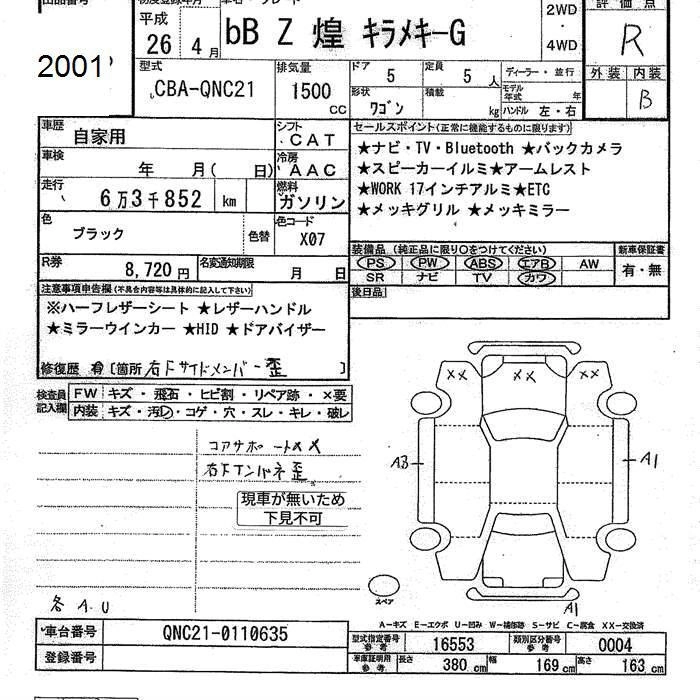 出品番号
2001
初度登録年月
平成
26年 4月
車名・グレード
bB Z 煌 キラメキ-G
2WD
・
4WD
評価点
R
外装 内装
B
型式
CBA-QNC21
排気量
1500 CC
ドア 5
形状 ワゴン
定員 5 人
積載 kg
ディーラー・並行
モデル年式 年
ハンドル 左・右
車歴 自家用
シフト CAT
車検 年 月( 日)
冷房 AAC
走行 6万3千852 km
燃料 ガソリン
色 ブラック
色替
色コード X07
R券 8,720円
名変通知期限 月 日
セールスポイント(正常に機能するものに限ります)
★ナビ・TV・Bluetooth ★バックカメラ
★スピーカーイルミ★アームレスト
★WORK 17インチアルミ★ETC
★メッキグリル ★メッキミラー
装備品 (純正品に限り○をつけてください)
PS PW ABS エアB AW
SR ナビ TV カワ
新車保証書
有・無
後日品
注意事項申告欄(不具合内容等は具体的に記入して下さい)
※ハーフレザーシート ★レザーハンドル
★ミラーウインカー ★HID ★ドアバイザー
修復歴 有 [箇所 右フサイドメンバー歪 ]
検査員記入欄
FW キズ・飛石・ヒビ割・リペア跡・×要
内装 キズ・汚レ・コゲ・穴・スレ・キレ・破レ
コアサポートXX
右フインパネ歪
現車が無いため
下見不可
各 A.U
XX XX XX
A3 A1
スペア
A1
A-キズ E-エクボ U-凹み W-補修跡 S-サビ C-腐食 XX-交換済
車台番号 QNC21-0110635
登録番号
型式指定番号 参考 16553
類別区分番号 参考 0004
車庫証明用 参考 長さ 380 cm 幅 169 cm 高さ 163 cm